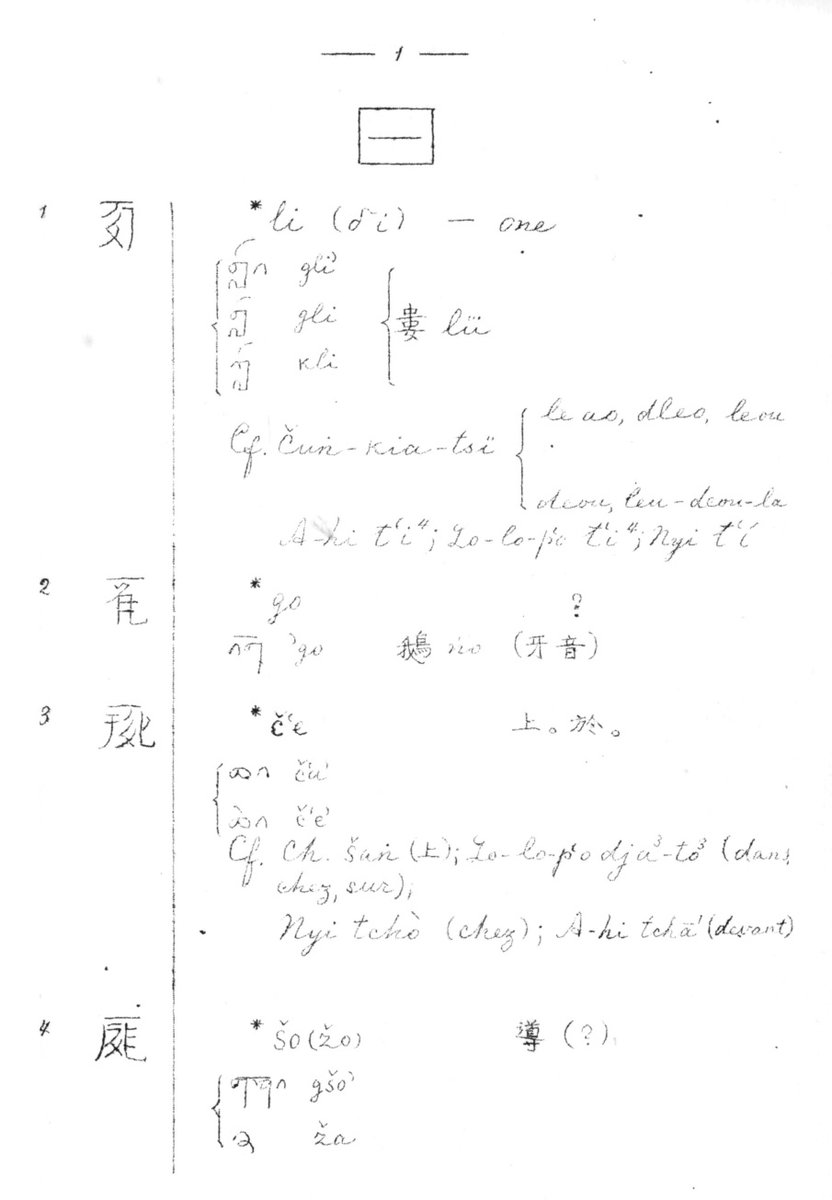 — 1 —
一
1 𘈩 *li (δi) — one
གླིའ gli’
གླི gli
ཀླི kli
婁 lü
Cf. Čuṅ-kia-tsï
le ao, dleo, leou
deou, leu-deou-la
A-hi t‘i⁴; Lo-lo-p‘o t‘i⁴; Nyi t‘i
2 *go ?
’go 鵝 ṅo (牙音)
3 *č‘e 上。於。
ཆའ č‘a’
ཆེའ č‘e’
Cf. Ch. šaṅ (上); Lo-lo-p‘o dja³-to³ (dans,
chez, sur);
Nyi tchò (chez); A-hi tchā (devant)
4 *šo (žo) 導 (?)
gšo’
ža